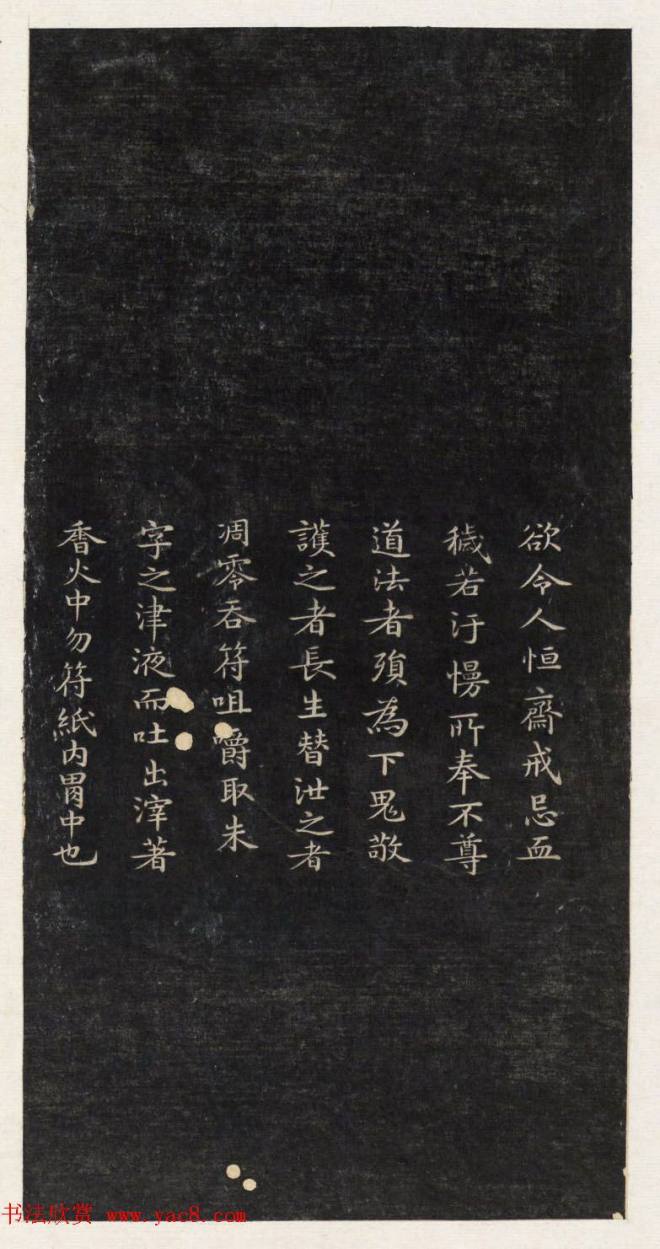 欲令人恒齋戒忌血
穢若汙慢所奉不尊
道法者須為下鬼敬
護之者長生替泄之者
凋零吞符咀嚼取朱
字之津液而吐出滓著
香火中勿符紙内胃中也
书法欣赏 www.yac8.com